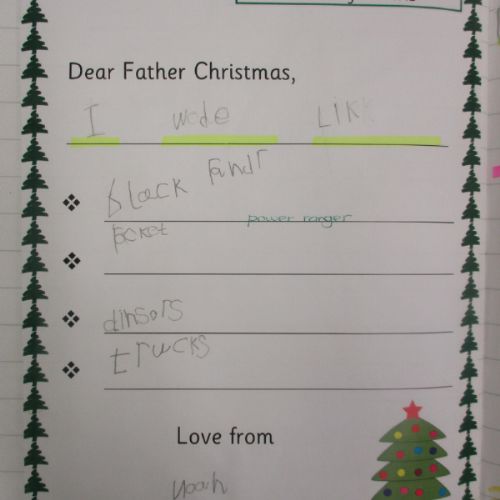 Dear Father Christmas,
I wode LIK
black Pandr
power ranger
poket
dinsors
trucks
Love from
Noah